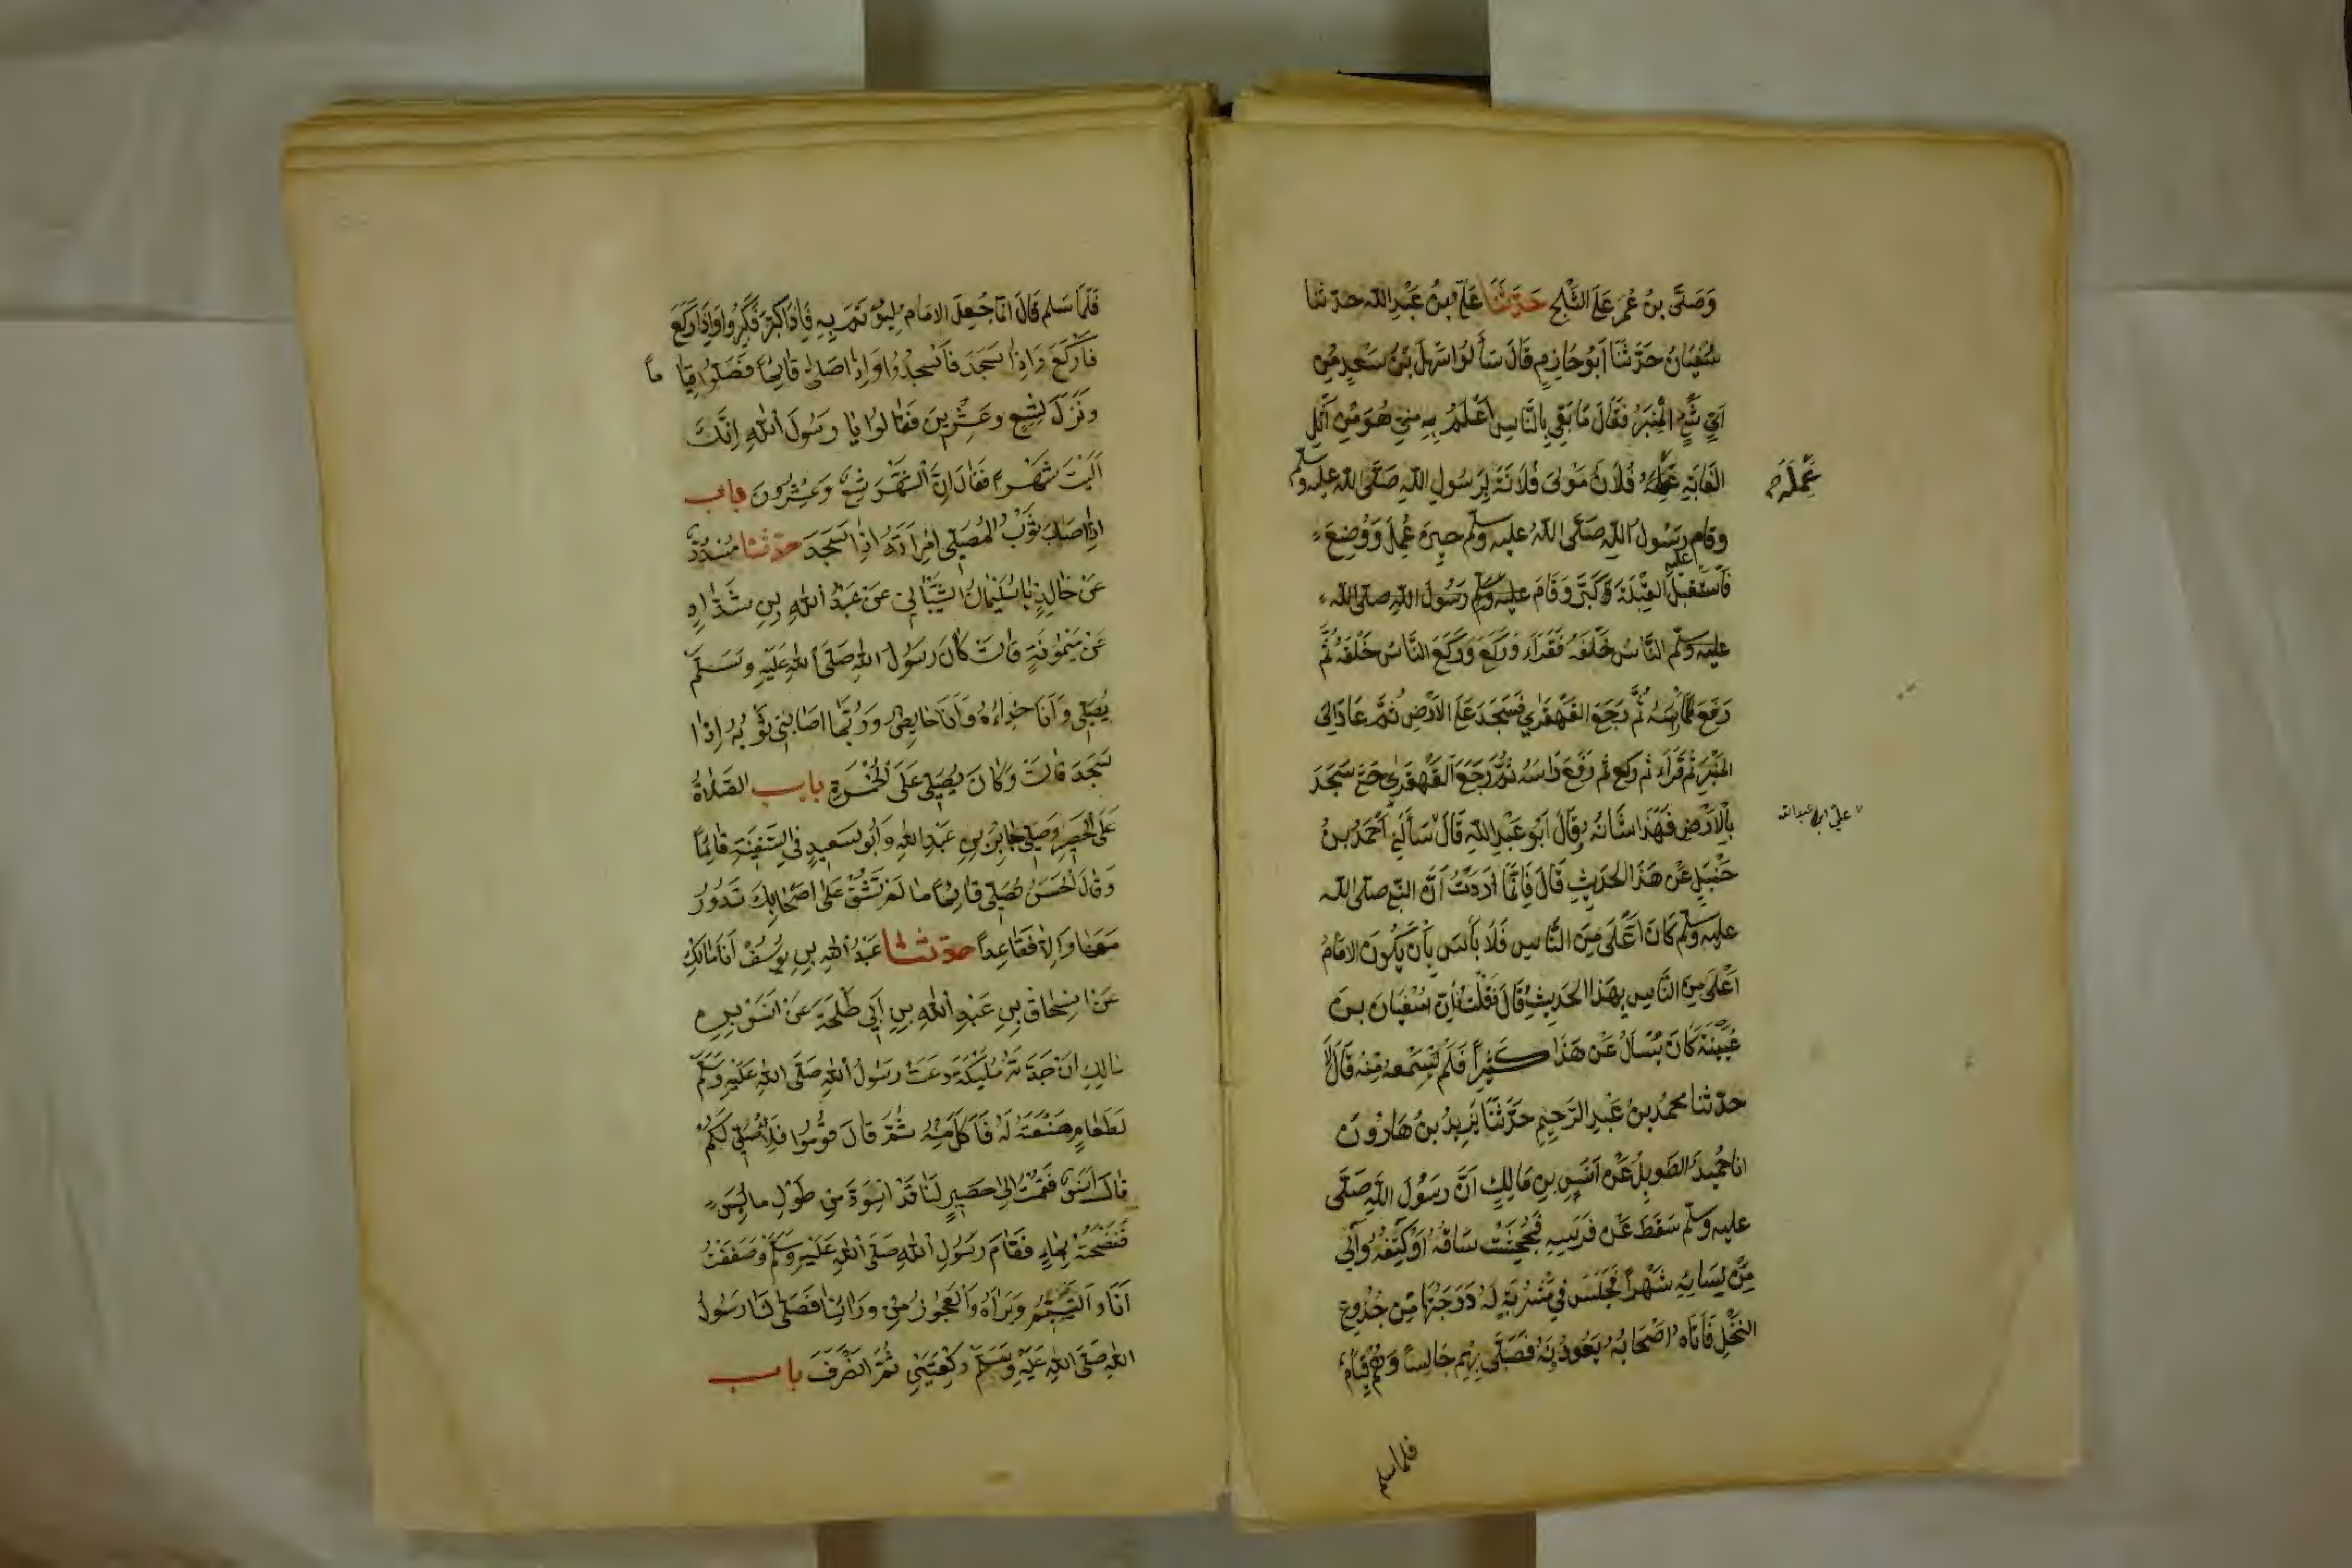 وَصَلَّى بنُ عُمَرَ عَلَى الثَّلْجِ حَدَّثَنَا عَلِيُّ بنُ عَبْدِ اللّٰه حدّثنا
سُفْيَانُ حَدَّثَنَا اَبُو حَازِمٍ قَالَ سَأَلُوا سَهْلَ بْنَ سَعْدٍ مِنْ
اَيِّ شَيْءٍ الْمِنْبَرُ فَقَالَ مَا بَقِيَ بِالنَّاسِ اَعْلَمُ بِهِ مِنِّي هُوَ مِنْ اَثْلِ
الْغَابَةِ عَمِلَهُ فُلَانٌ مَوْلَى فُلَانَةَ لِرَسُولِ اللّٰهِ صَلَّى اللّٰه عليه وسلم
عَمِلَهُ
وقام رَسُولُ اللّٰهِ صَلَّى اللّٰهُ عليه وسلم حِينَ عُمِلَ وَوُضِعَ
فَاسْتَقْبَلَ الْقِبْلَةَ كَبَّرَ وَقَامَ عليه وسلم رَسُولُ اللّٰهِ صلى اللّٰه
عليه
عليه وسلم النَّاسُ خَلْفَهُ فَقَرَاَ وَرَكَعَ وَرَكَعَ النَّاسُ خَلْفَهُ ثُمَّ
رَفَعَ رَاْسَهُ ثُمَّ رَجَعَ الْقَهْقَرٰي فَسَجَدَ عَلَى الْاَرْضِ ثُمَّ عَادَ اِلَى
الْمِنْبَرِ ثُمَّ قَرَاَ ثم ركع ثم رَفَعَ رَاسَهُ ثُمَّ رَجَعَ الْقَهْقَرٰى حَتَّى سَجَدَ
بِالْاَرْضِ فَهٰذَا شَانُهُ وقَالَ اَبُو عَبْدِ اللّٰهِ قَالَ سَاَلَنِي اَحْمَدُ بنُ
علي ابن عبد الله
حَنْبَلٍ عَنْ هَذَا الْحَدِيثِ قَالَ فَاِنَّمَا اَرَدْتُ اَنَّ النبي صلى اللّٰه
عليه وسلم كَانَ اَعْلَى مِنَ النَّاسِ فَلَا بَأْسَ بِأَنْ يَكُونَ الامَامُ
اَعْلَى مِنَ النَّاسِ بِهَذَا الْحَدِيثِ قَالَ فَقُلْتُ فَاِنَّ سُفْيَانَ بنَ
عُيَيْنَةَ كَانَ يُسْاَلُ عَنْ هَذَا كَثِيْرًا فَلَمْ تَسْمَعهُ مِنْهُ قَالَ لَا
حدّثنا مُحمدُ بنُ عَبْدِ الرَّحِيمِ حَدَّثَنَا يَزِيدُ بنُ هَارُونَ
انا حُمَيْدُ الطَّوِيلُ عَنْ اَنَسِ بنِ مَالِكٍ اَنَّ رَسُولَ اللّٰهِ صَلَّى
عليه وسلم سَقَطَ عَنْ فَرَسِهِ فَجُحِشَتْ سَاقُهُ اَوْ كَتِفُهُ وَاٰلٰى
مِنْ نِسَائِهِ شَهْرًا فَجَلَسَ فِي مَشْرُبَةٍ لَهُ دَرَجَتُهَا مِنْ جُذُوعِ
النَّخْلِ فَاَتَاهُ اَصْحَابُهُ يَعُودُونَهُ فَصَلَّى بِهِم جَالِسًا وَهُمْ قِيَامٌ
فلما سلم
فَلَمَّا سَلم قَالَ انّمَا جُعِلَ الامَام لِيُؤْتَمَّ بِهِ فَاِذَا كَبَّرَ فَكَبِّرُوا وَاِذَا رَكَعَ
فَارْكَعَ وَاِذَا سَجَدَ فَاَسْجُدُوا وَاِنْ صَلَّى قَائِمًا فَصَلُّوا قِيَا مًا
ونَزَلَ لتِسْعٍ وعِشْرِينَ فَقَالُوا يَا رَسُولَ اللّٰهِ اِنَّكَ
اٰلَيْتَ شَهْرًا فَقَالَ اِنَّ الشَّهْرَ تِسْعٌ وَعِشْرُونَ باب
اِذَا اصَابَ ثَوْبُ الْمُصَلِّي امْرَاَتَهُ اِذَا سَجَدَ حدّثنا مُسَدَّدٌ
عَنْ خَالِدٍ نا سُلَيْمَانُ الشَّيْبَانِيُّ عَنْ عَبْدِ اللّٰهِ بنِ شَدَّادٍ
عَنْ مَيْمُونَةَ قَالَتْ كَانَ رَسُولُ اللّٰهِ صَلَّى اللّٰه عَلَيْهِ وَسَلَّمَ
يُصَلِّي وَاَنَا حِذَاءُهُ وَاَنَا حَايِضٌ وَرُبَّمَا اصَابَنِي ثَوْبُهُ اِذَا
سَجَدَ قَالَتْ وَكَانَ يُصَلِّي عَلَى الْخُمْرَةِ باب الصَّلَاةُ
عَلَى الْحَصِيرِ وَصَلَّى جَابِرُ بنُ عَبْدِ اللّٰهِ وَاَبُو سَعِيدٍ فِي السَّفِينَةِ قَائِمًا
وَقَالَ الْحَسَنُ تُصَلِّي قَائِمًا مَا لَمْ تَشُقَّ عَلَى اَصْحَابِكَ تَدُورُ
مَعَهَا وَاِلَّا فَقَاعِدًا حدّثنا عَبْدُ اللّٰهِ بنِ يُوسُفْ اَنَا مَالِكٌ
عَنْ اِسْحَاقَ بنِ عَبْدِ اللّٰهِ بنِ اَبِي طَلْحَةَ عَنْ اَنَسِ بنِ
مَالِكٍ اَنَّ جَدَّتَهُ مُلَيْكَةَ دَعَتْ رَسُولَ اللّٰهِ صَلَّى اللّٰه عَلَيْهِ وَسَلَّمَ
لطَعَامٍ صَنَعَتْهُ لَهُ فَاَكَلَ مِنْهُ ثُمَّ قَالَ قُومُوا فَلِاُصَلِّي لَكُمْ
قَالَ اَنَسٌ فَقُمْتُ اِلَى حَصِيرٍ لَنَا قَدْ اسْوَدَّ مِنْ طُولِ مَا لُبِسَ
فَنَضَحْتُهُ بِمَاءٍ فَقَامَ رَسُولُ اللّٰهِ صَلَّى اللّٰهِ عَلَيْهِ وَسَلَّمَ وَصَفَفْتُ
اَنَا وَالْيَتِيمُ وَرَاءَهُ وَالْعَجُوزُ مِنْ وَرَائِنَا فَصَلَّى لَنَا رَسُولُ
اللّٰهِ صَلَّى اللّٰهِ عَلَيْهِ وَسَلَّمَ رَكْعَتَيْنِ ثُمَّ انْصَرَفَ باب